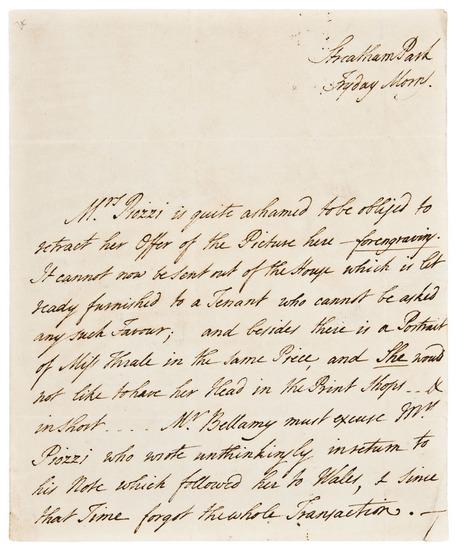 Streatham Park
Fryday Morn.
Mrs. Piozzi is quite ashamed to be obliged to
retract her Offer of the Picture here – for engraving.
It cannot now be sent out of the House which is let
ready furnished to a Tenant who cannot be asked
any such Favour; and besides there is a Portrait
of Miss Thrale in the same Piece and She would
not like to have her Head in the Print Shops .. &
in short .... Mr. Bellamy must excuse Mrs
Piozzi who wrote unthinkingly in return to
his Note which followed her to Wales, & since
that Time forgot the whole Transaction. —